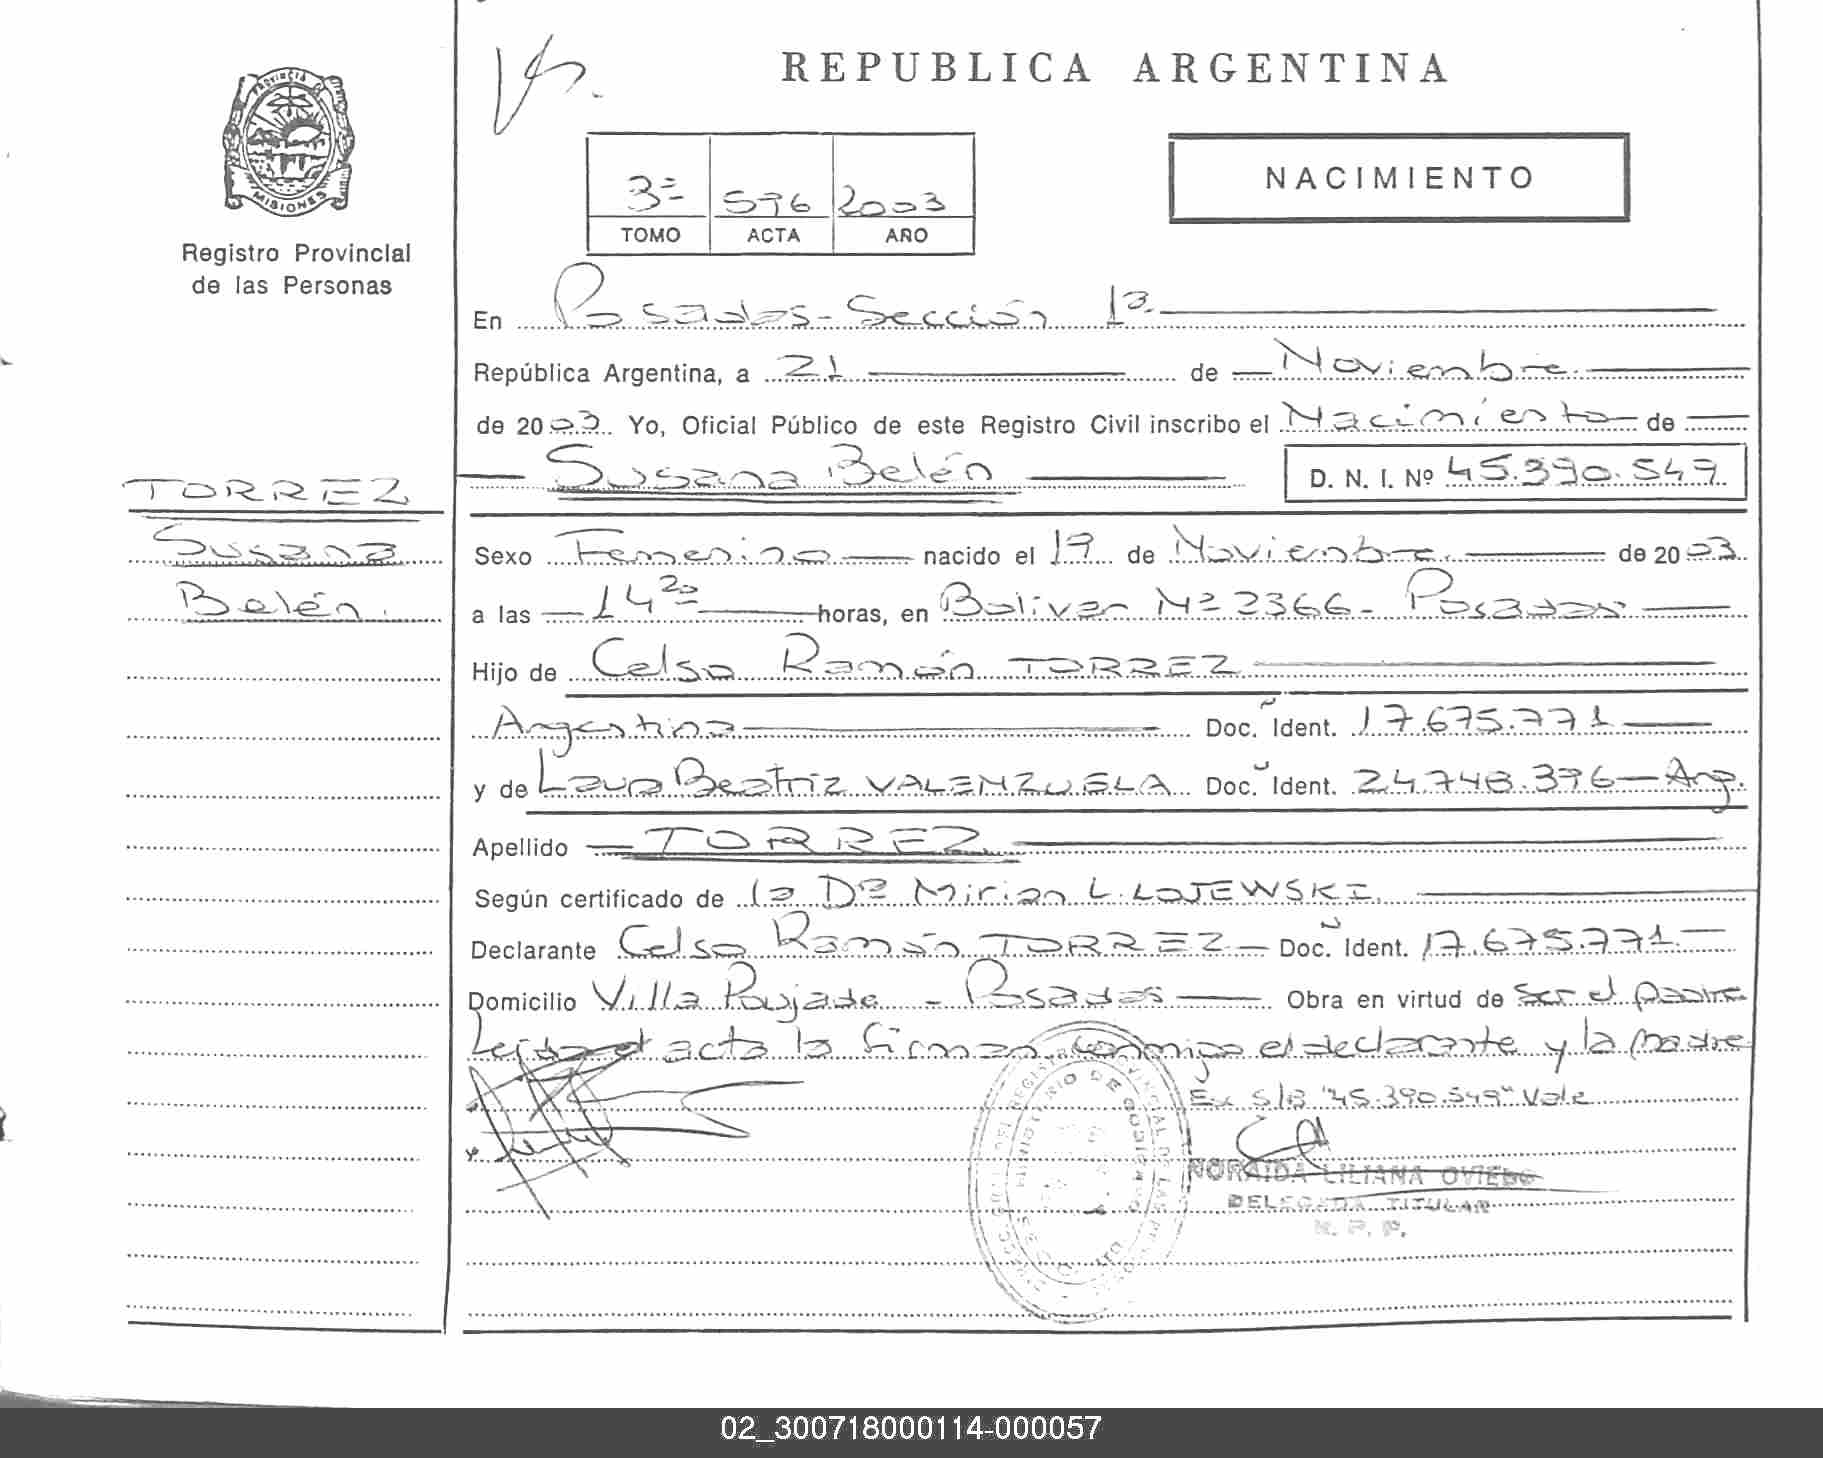 REPUBLICA ARGENTINA
PROVINCIA
MISIONES
Registro Provincial
de las Personas
NACIMIENTO
3ª 596 2003
TOMO ACTA AÑO
En Posadas - Sección 1ª
República Argentina, a 21 de Noviembre
de 2003 Yo, Oficial Público de este Registro Civil inscribo el Nacimiento de
Susana Belén D. N. I. Nº 45.390.549
TORREZ
Susana
Belén.
Sexo Femenino nacido el 19 de Noviembre de 2003
a las 14 20 horas, en Bolivar Nº 2366 - Posadas
Hijo de Celso Ramón TORREZ
Argentina Doc. Ident. 17.675.771
y de Laura Beatriz VALENZUELA Doc. Ident. 24.748.396 - Arg.
Apellido TORREZ
Según certificado de la Dª Mirian L. LOJEWSKI.
Declarante Celso Ramón TORREZ - Doc. Ident. 17.675.771.
Domicilio Villa Poujade - Posadas Obra en virtud de Ser el padre
Leída el acta la firman conmigo el declarante y la madre
S/B "45.390.549" Vale
NORAIDA LILIANA OVIEDO
DELEGADA TITULAR
R. P. P.
02_300718000114-000057